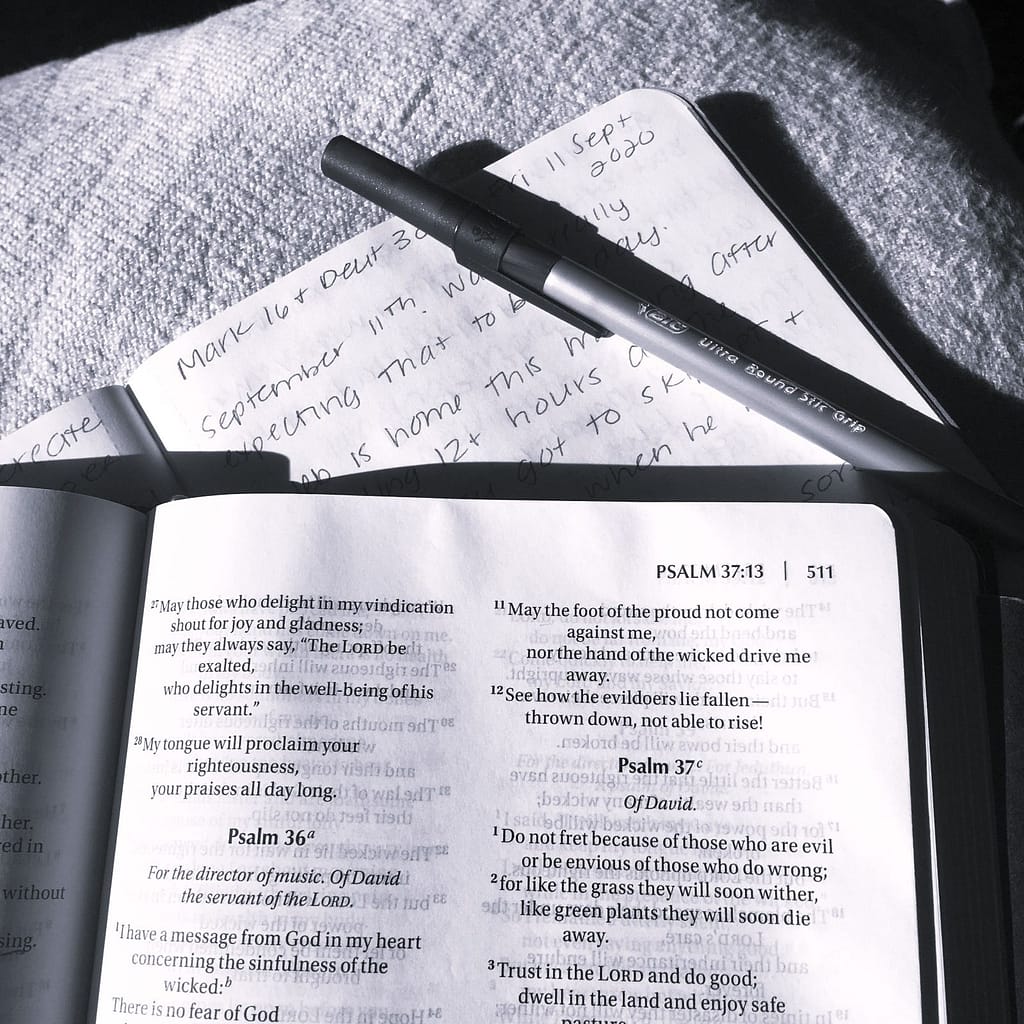 Fri 11 Sept
2020
Mark 16 + Deut 30
September 11th. really
expecting that to be day.
is home this after
12+ hours +
got to
when he
BIC Ultra Round Stic Grip
PSALM 37:13 | 511
27 May those who delight in my vindication
shout for joy and gladness;
may they always say, “The LORD be
exalted,
who delights in the well-being of his
servant.”
28 My tongue will proclaim your
righteousness,
your praises all day long.
Psalm 36a
For the director of music. Of David
the servant of the LORD.
1 I have a message from God in my heart
concerning the sinfulness of the
wicked:b
There is no fear of God
11 May the foot of the proud not come
against me,
nor the hand of the wicked drive me
away.
12 See how the evildoers lie fallen—
thrown down, not able to rise!
Psalm 37c
Of David.
1 Do not fret because of those who are evil
or be envious of those who do wrong;
2 for like the grass they will soon wither,
like green plants they will soon die
away.
3 Trust in the LORD and do good;
dwell in the land and enjoy safe
pasture.